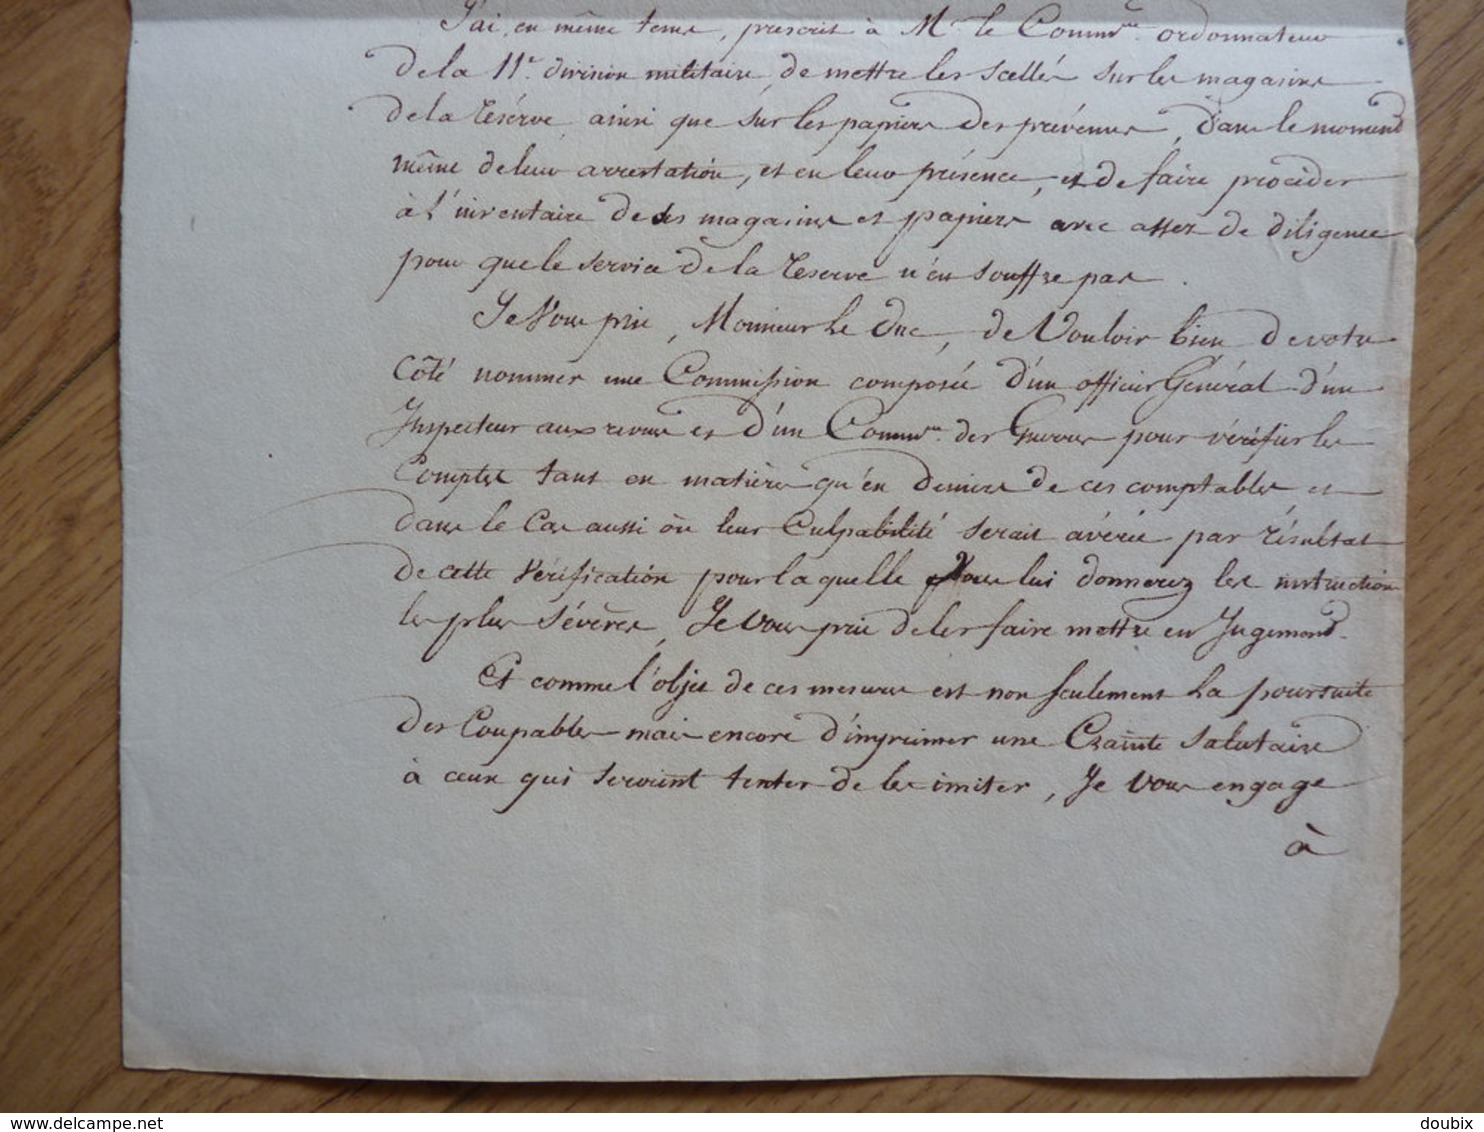 J'ai, en même tems, prescrit à Mr le Commre ordonnateur
de la 11e division militaire, de mettre les scellés sur les magasins
de la réserve, ainsi que sur les papiers des prévenus, dans le moment
même de leur arrestation, et en leur présence, et de faire procéder
à l'inventaire de ces magasins et papiers avec assez de diligence
pour que le service de la réserve n'en souffre pas.
Je Vous prie, Monsieur le duc, de Vouloir bien de votre
côté nommer une Commission composée d'un officier Général d'un
Inspecteur aux revues et d'un Commre des Guerres pour vérifier les
Comptes tant en matières qu'en deniers de ces comptables et
dans le Cas aussi où leur Culpabilité serait avérée par résultat
de cette Vérification pour laquelle Vous lui donnerez les instruction
les plus sévères, Je vous prie de les faire mettre en Jugement.
Et comme l'objet de ces mesures est non seulement la poursuite
des Coupables mais encore d'imprimer une Crainte salutaire
à ceux qui seroient tenter de les imiter, Je vous engage
à
delcampe.net
doubix